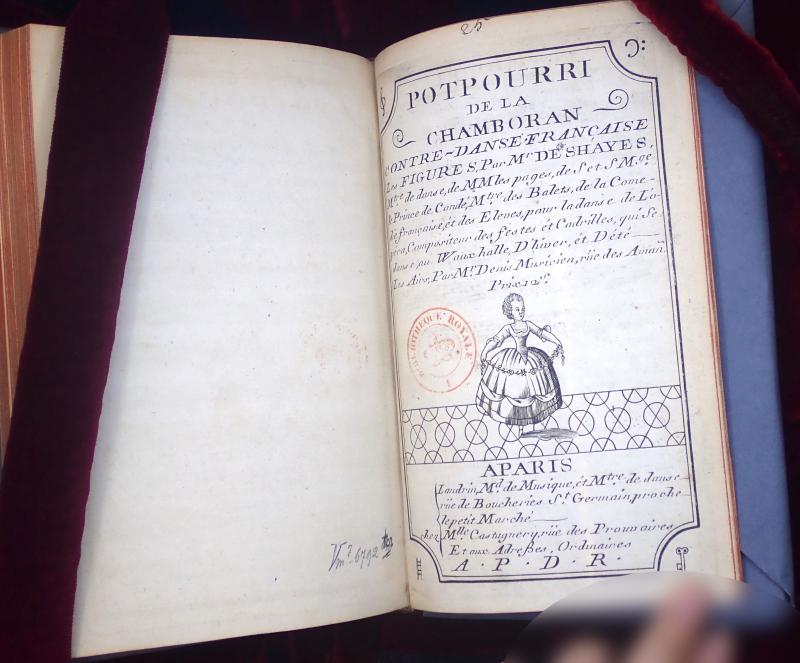 25
POTPOURRI
DE LA
CHAMBORAN
CONTRE-DANSE FRANÇAISE
Les FIGURES, Par Mr. DESHAYES,
Mtre de danse, de MM les pages, de S et S M.gr
le Prince de Condé, Mtre des Balets, de la Come-
die française, ét des Eleves, pour la danse de L'o-
pera, Compositeur des festes ét Cadrilles, qui Se
danse, au Waux halle, D'hiver, ét D'été
Les Airs, Par Mr. Denis Musicien, rüe des Aman.
Prix 12s.
BIBLIOTHEQUE ROYALE
APARIS
Landrin, Md. de Musique, ét Mtre de danse
rüe de Boucheries St Germain, proche
le petit Marché
chez Mlle Castagnery, rüe des Prouvaires
Et aux Adreßes, Ordinaires
A. P. D. R.
Vm7. 6792